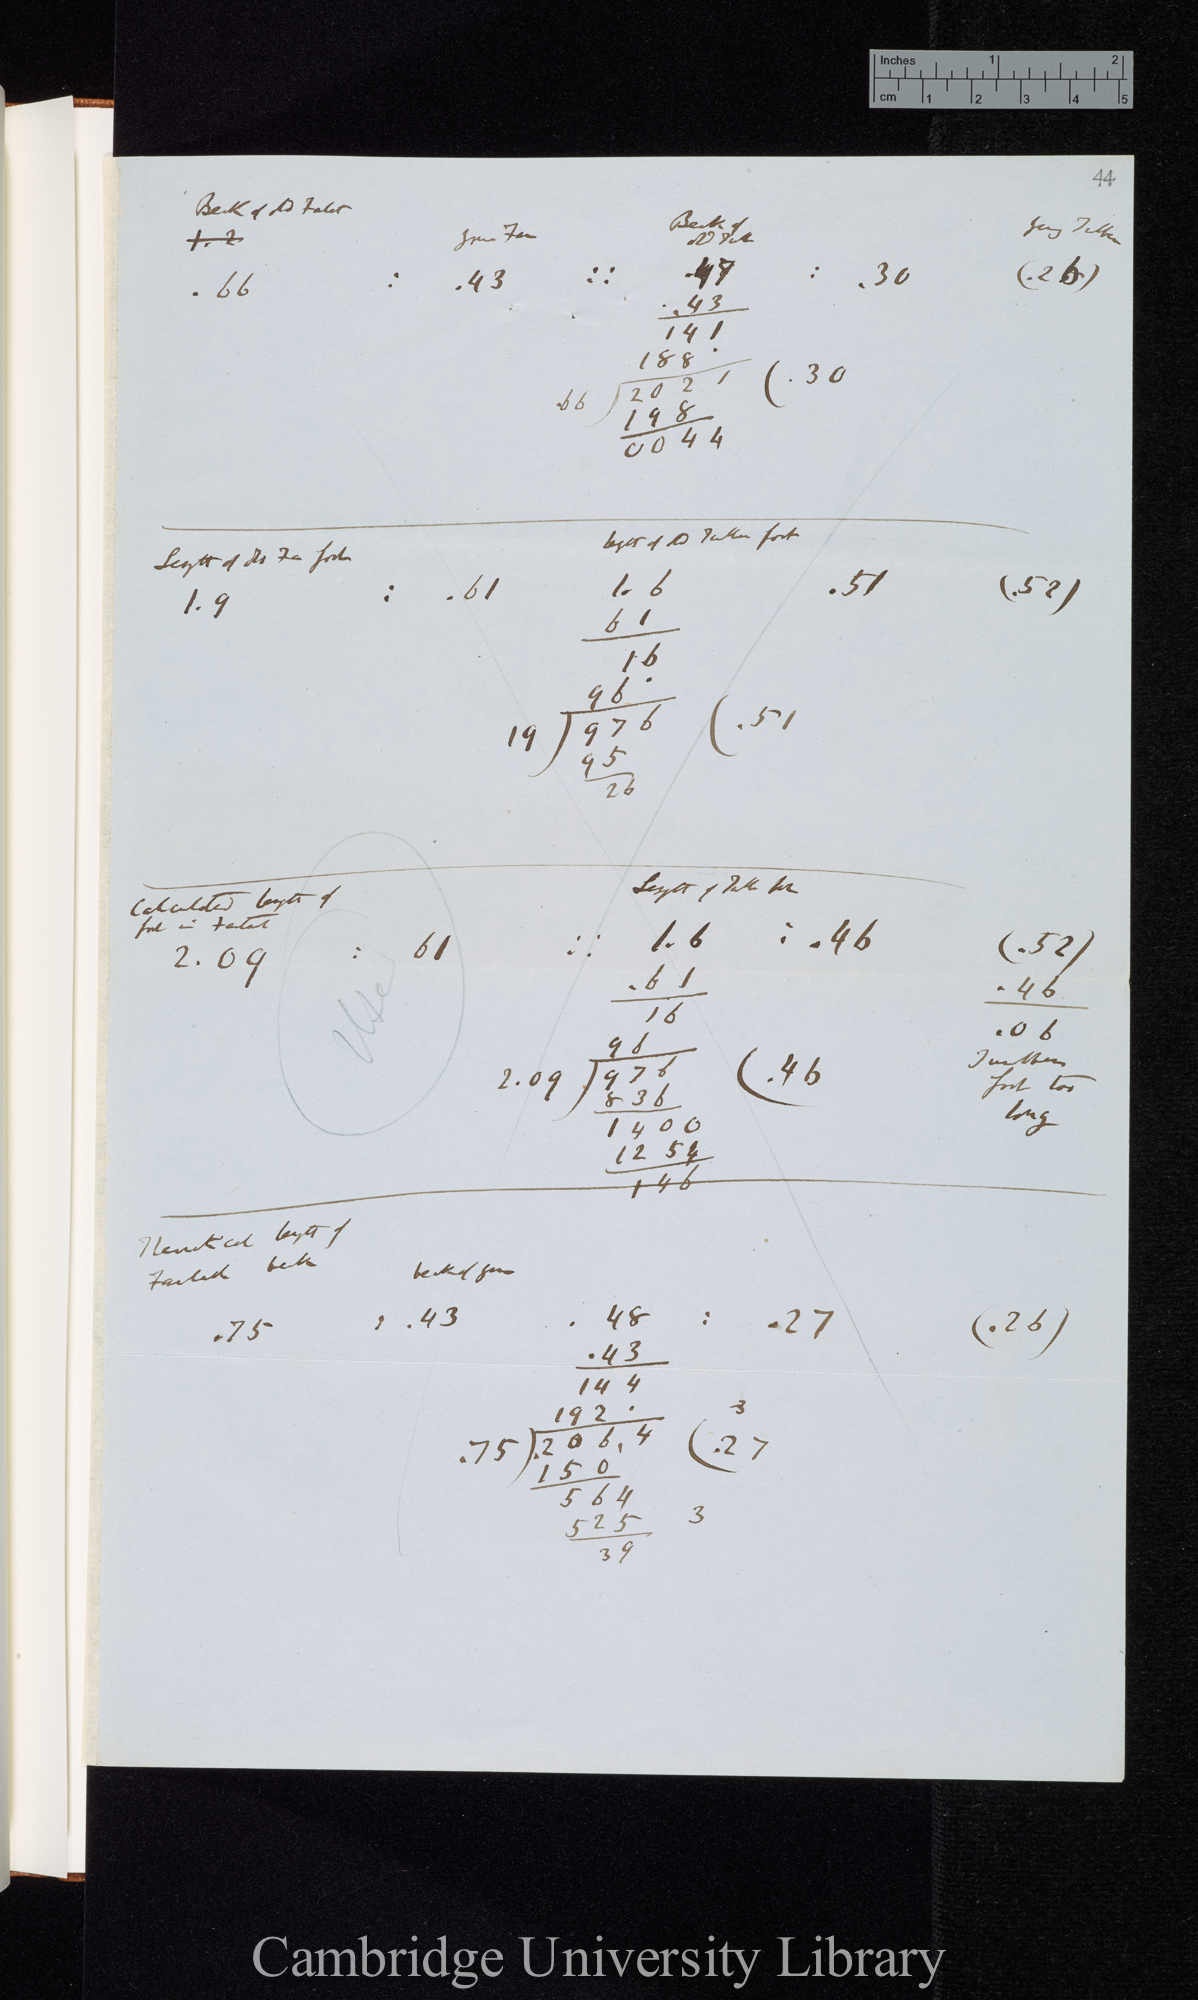 Inches 1 2
cm 1 2 3 4 5
44
Beak of old Fantail
1.2
young Fan
Beak of
old Tumb
young Tumbler
.66 : .43 :: .47 : .30 (.26)
.43
141
188.
.66 ) 2021 ( .30
198
0044
Length of old Fan foot
length of old Tumbler foot
1.9 : .61 1.6 .51 (.52)
61
16
96.
19 ) 976 ( .51
95
26
Calculated length of
foot in Fantail
Length of Tumb foot
2.09 : 61 :: 1.6 : .46 (.52)
.61 .46
16 .06
96
2.09 ) 976 ( .46
836
1400
1254
146
Tumblers
foot too
long
Used
Theoretical length of
Fantail beak
beak of young
.75 : .43 . 48 : .27 (.26)
.43
144
192.
3
.75 ) .206,4 ( .27
150
564
525 3
39
Cambridge University Library